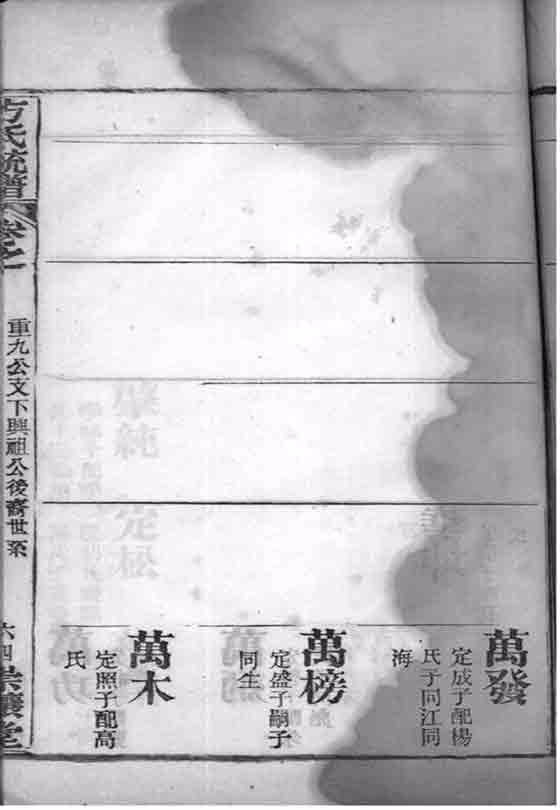 萬發
定成子配楊
氏子同江同
海
萬榜
定盛子嗣子
同生
萬木
定照子配高
氏
方氏統譜
卷之一
重九公文下興祖公後裔世系
六四
崇讓堂